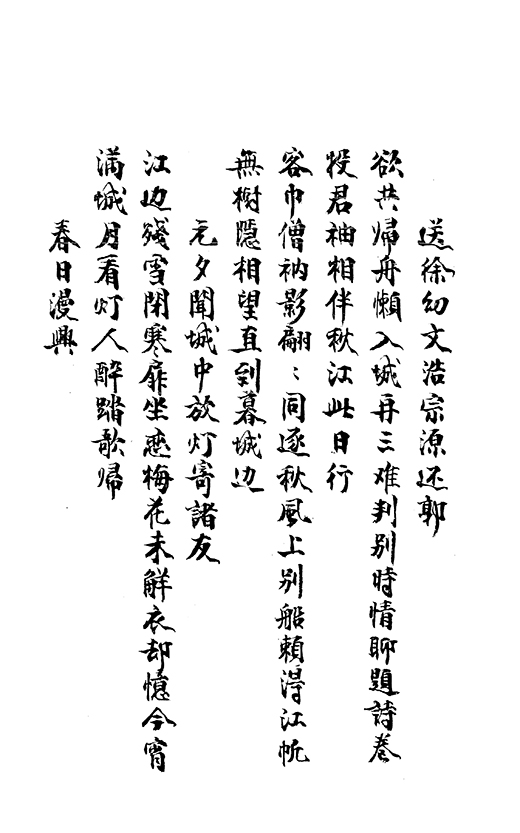 送徐幼文浩宗源还郭
欲共帰舟懶入城再三难判别時情聊題詩卷
投君袖相伴秋江此日行
客巾僧衲影翩〻同逐秋風上别船頼得江帆
無樹隠相望直到暮城边
元夕聞城中放灯寄諸友
江边殘雪閉寒扉坐恋梅花未解衣却憶今宵
满城月看灯人醉踏歌帰
春日漫興